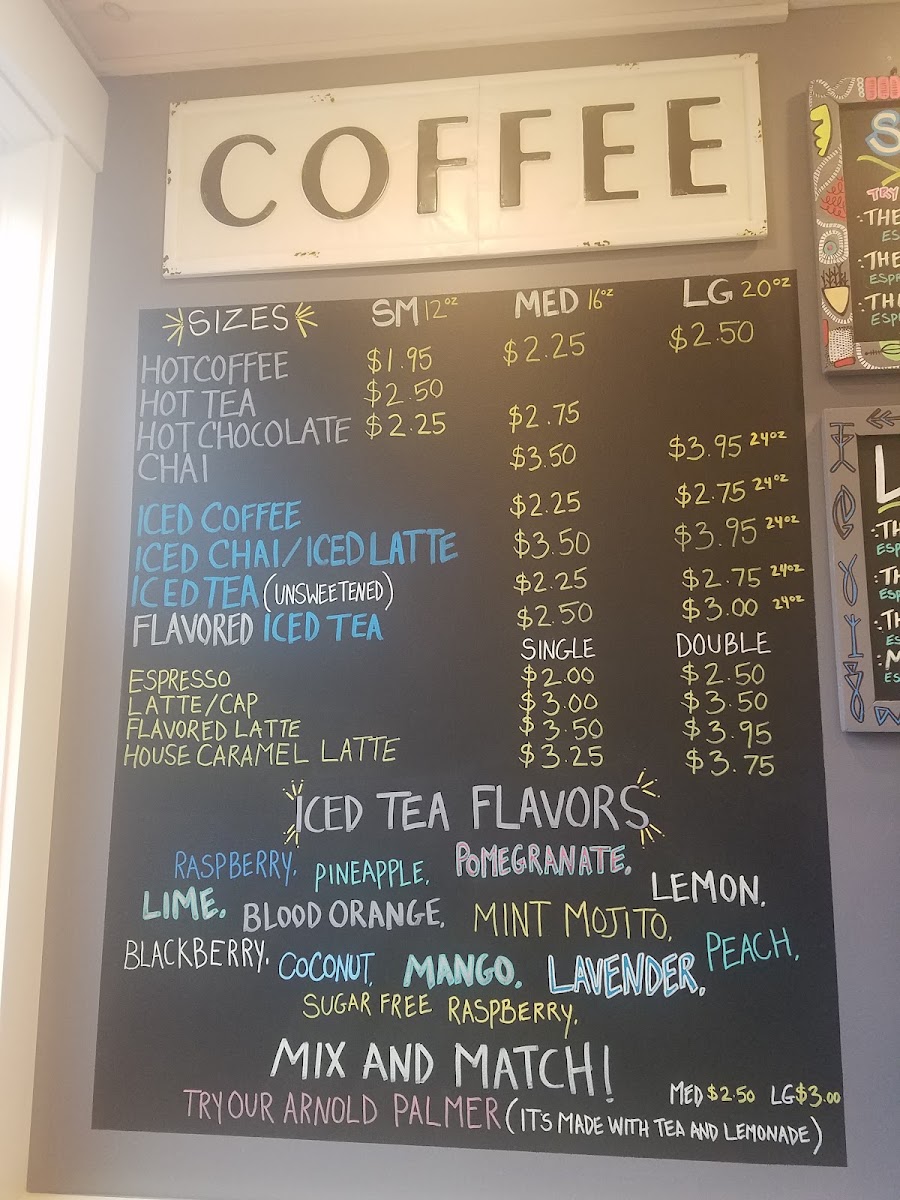 COFFEE
SIZES SM 12oz MED 16oz LG 20oz
HOT COFFEE $1.95 $2.25 $2.50
HOT TEA $2.50
HOT CHOCOLATE $2.25 $2.75
CHAI $3.50 $3.95 24oz
ICED COFFEE $2.25 $2.75 24oz
ICED CHAI/ICED LATTE $3.50 $3.95 24oz
ICED TEA (UNSWEETENED) $2.25 $2.75 24oz
FLAVORED ICED TEA $2.50 $3.00 24oz
SINGLE DOUBLE
ESPRESSO $2.00 $2.50
LATTE/CAP $3.00 $3.50
FLAVORED LATTE $3.50 $3.95
HOUSE CARAMEL LATTE $3.25 $3.75
ICED TEA FLAVORS
RASPBERRY, PINEAPPLE, POMEGRANATE,
LIME, BLOOD ORANGE, MINT MOJITO, LEMON,
BLACKBERRY, COCONUT, MANGO, LAVENDER, PEACH,
SUGAR FREE RASPBERRY,
MIX AND MATCH!
MED $2.50 LG $3.00
TRY OUR ARNOLD PALMER (IT'S MADE WITH TEA AND LEMONADE)
TRY
THE
THE